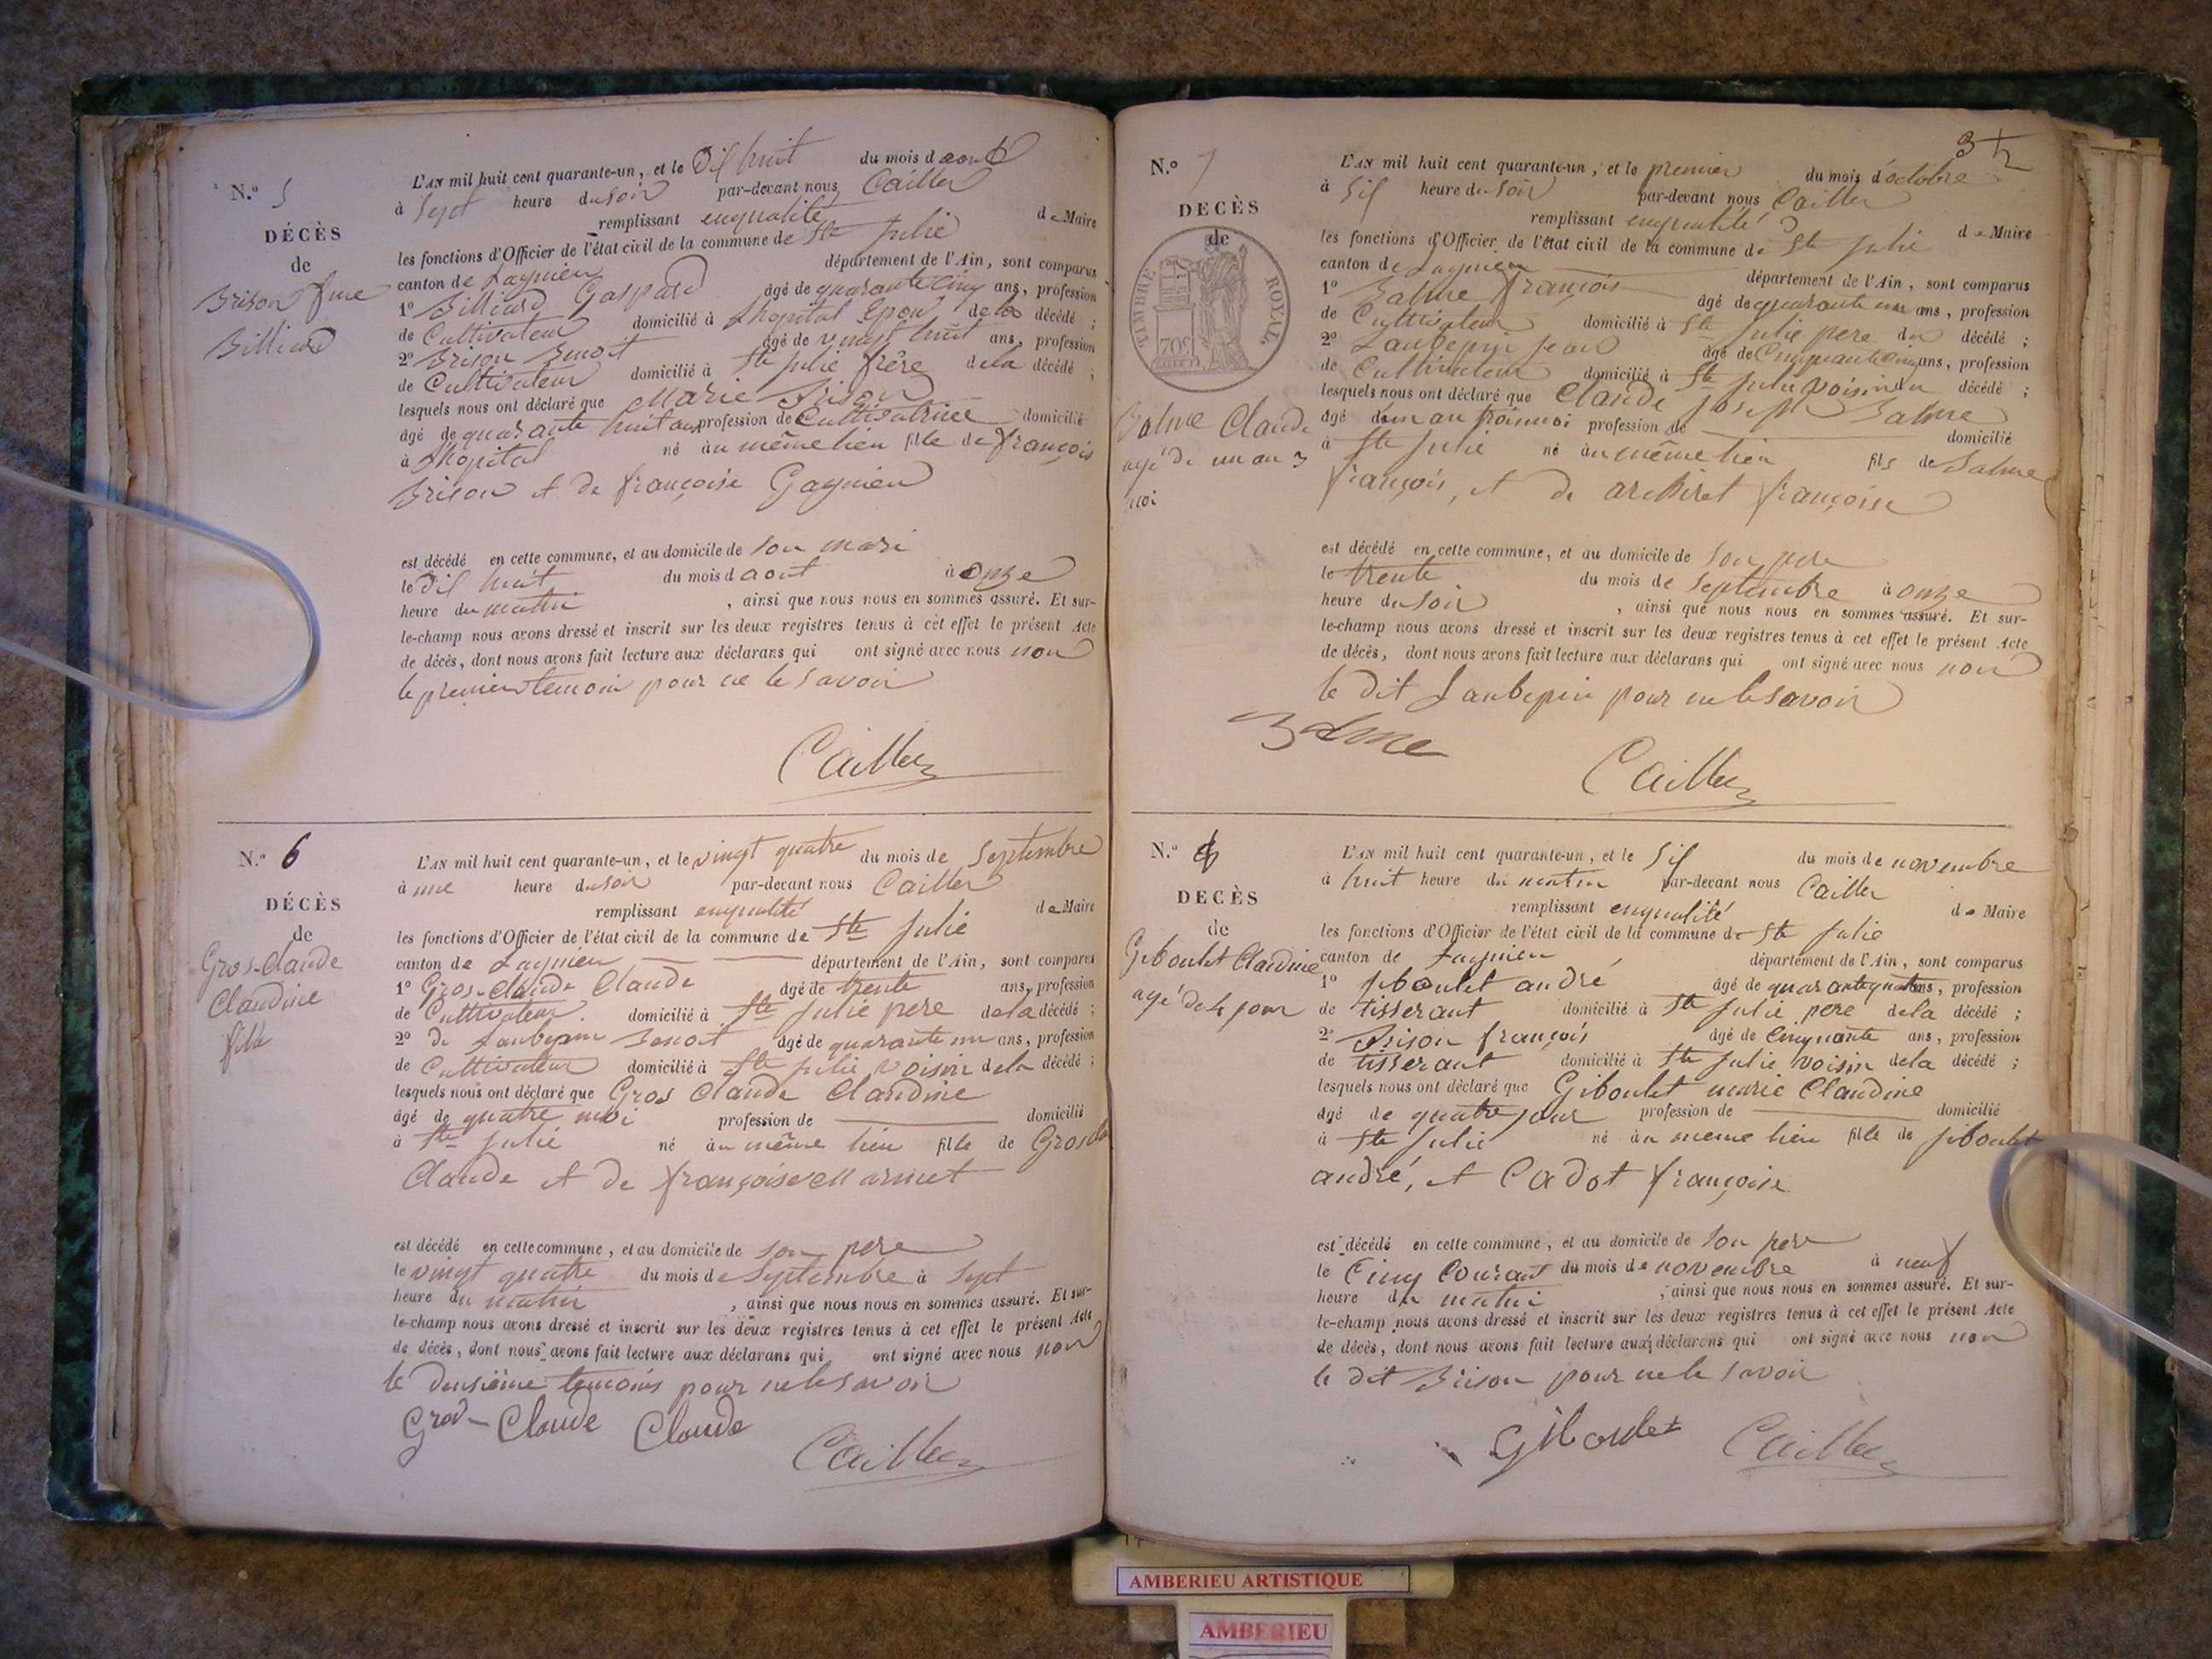 N.º 5
DÉCÈS
de
Brison fme
Billiard
L'AN mil huit cent quarante-un, et le Dix huit du mois d aout
à Sept heure du soir par-devant nous Cailler
remplissant enqualité de Maire
les fonctions d'Officier de l'état civil de la commune de Ste Julie
canton de Lagnieu département de l'Ain, sont comparus
1º Billiard Gaspard âgé de quarante cinq ans, profession
de Cultivateur domicilié à Lhopital Epou de la décédé ;
2º Brison Benoit âgé de vingt huit ans, profession
de Cultivateur domicilié à Ste Julie frère dela décédé ;
lesquels nous ont déclaré que Marie Brison
âgé de quarante huit ans profession de Cultivatrice domicilié
à Lhopital né au même lieu fille de françois
Brison et de françoise Gagnieu
est décédé en cette commune, et au domicile de son mari
le Dix huit du mois d aout à onze
heure du matin , ainsi que nous nous en sommes assuré. Et sur-
le-champ nous avons dressé et inscrit sur les deux registres tenus à cet effet le présent Acte
de décès, dont nous avons fait lecture aux déclarans qui ont signé avec nous non
le premier temoin pour ne le savoir
Cailler
N.º 6
DÉCÈS
de
Gros-Claude
Claudine
fille
L'AN mil huit cent quarante-un, et le vingt quatre du mois de Septembre
à une heure du soir par-devant nous Cailler
remplissant enqualité de Maire
les fonctions d'Officier de l'état civil de la commune de Ste Julie
canton de Lagnieu département de l'Ain, sont comparus
1º Gros-Claude Claude âgé de trente ans, profession
de Cultivateur domicilié à Ste Julie pere dela décédé ;
2º de Laubepin Benoit âgé de quarante un ans, profession
de Cultivateur domicilié à Ste Julie voisin dela décédé ;
lesquels nous ont déclaré que Gros Claude Claudine
âgé de quatre moi profession de domicilié
à Ste Julie né au même lieu fille de Gros
Claude et de françoise Marmet
est décédé en cette commune, et au domicile de son pere
le vingt quatre du mois de Septembre à Sept
heure du matin , ainsi que nous nous en sommes assuré. Et sur-
le-champ nous avons dressé et inscrit sur les deux registres tenus à cet effet le présent Acte
de décès, dont nous avons fait lecture aux déclarans qui ont signé avec nous non
le deusième temoins pour ne le savoir
Gros-Claude Claude
Cailler
N.º 7
DECÈS
de
TIMBRE ROYAL
70c
Balme Claude
agé de un an 3
moi
L'AN mil huit cent quarante-un, et le premier du mois d'octobre
à Six heure du soir par-devant nous Cailler
remplissant enqualité de Maire
les fonctions d'Officier de l'état civil de la commune de Ste Julie
canton de Lagnieu département de l'Ain, sont comparus
1º Balme françois âgé de quarante un ans, profession
de Cultivateur domicilié à Ste Julie pere du décédé ;
2º Laubepin Jean âgé de Cinquante cinq ans, profession
de Cultivateur domicilié à Ste Julie voisin du décédé ;
lesquels nous ont déclaré que Claude Joseph Balme
âgé dun an trois moi profession de domicilié
à Ste Julie né au même lieu fils de Balme
françois, et de françoise
est décédé en cette commune, et au domicile de son pere
le trente du mois de Septembre à onze
heure du soir , ainsi que nous nous en sommes assuré. Et sur-
le-champ nous avons dressé et inscrit sur les deux registres tenus à cet effet le présent Acte
de décès, dont nous avons fait lecture aux déclarans qui ont signé avec nous non
le dit Laubepin pour ne le savoir
Balme
Cailler
N.º
DECÈS
de
Giboulet Claudine
agé de 4 jour
L'AN mil huit cent quarante-un, et le Six du mois de novembre
à huit heure du matin par-devant nous Cailler
remplissant enqualité de Maire
les fonctions d'Officier de l'état civil de la commune de Ste Julie
canton de Lagnieu département de l'Ain, sont comparus
1º Jiboulet andré âgé de quarante quatre ans, profession
de tisserant domicilié à Ste Julie pere dela décédé ;
2º Brison françois âgé de Cinquante ans, profession
de tisserant domicilié à Ste Julie voisin dela décédé ;
lesquels nous ont déclaré que Giboulet marie Claudine
âgé de quatre jour profession de domicilié
à Ste Julie né au meme lieu fille de Jiboulet
andré, et Cadot françoise
est décédé en cette commune, et au domicile de son pere
le Cinq Courant du mois de novembre à neuf
heure du matin , ainsi que nous nous en sommes assuré. Et sur-
le-champ nous avons dressé et inscrit sur les deux registres tenus à cet effet le présent Acte
de décès, dont nous avons fait lecture aux déclarans qui ont signé avec nous non
le dit Brison pour ne le savoir
Giboulet Cailler
AMBERIEU ARTISTIQUE
AMBERIEU